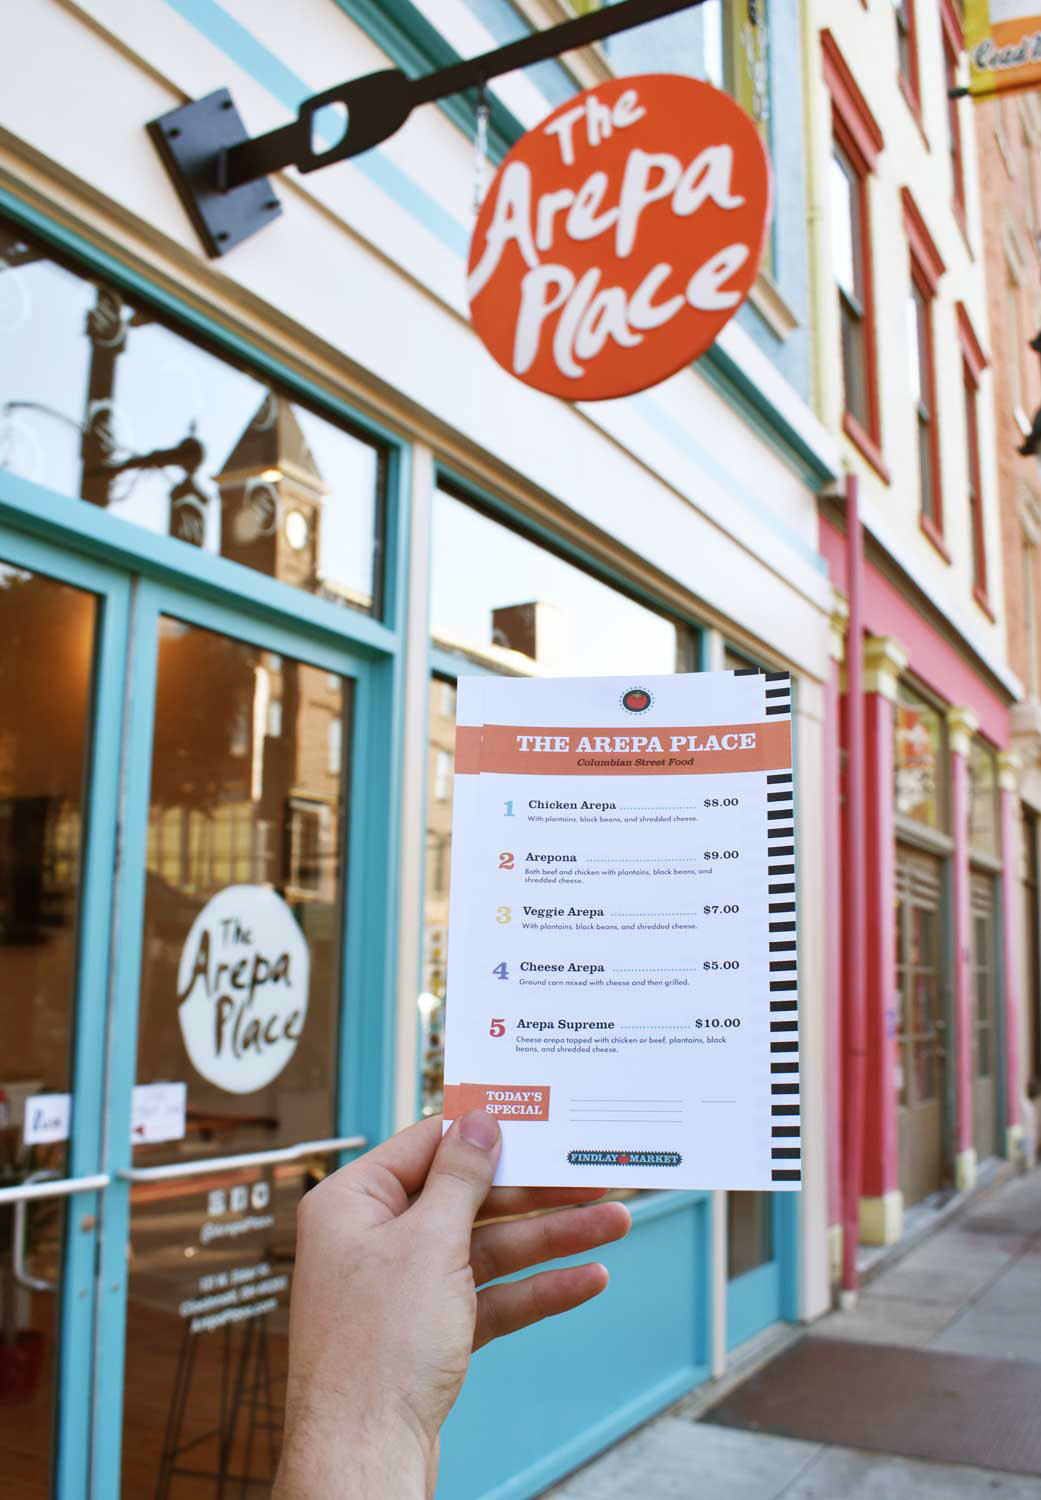 The
Arepa
Place
THE AREPA PLACE
Columbian Street Food
1 Chicken Arepa ........................ $8.00
With plantains, black beans, and shredded cheese.
2 Arepona ........................ $9.00
Both beef and chicken with plantains, black beans, and
shredded cheese.
3 Veggie Arepa ........................ $7.00
With plantains, black beans, and shredded cheese.
4 Cheese Arepa ........................ $5.00
Ground corn mixed with cheese and then grilled.
5 Arepa Supreme ........................ $10.00
Cheese arepa topped with chicken or beef, plantains, black
beans, and shredded cheese.
TODAY'S
SPECIAL
FINDLAY MARKET
The
Arepa
Place